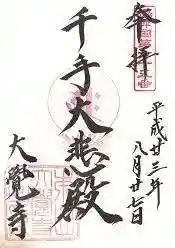 奉拝
平成廿三年
八月廿七日
千手大悲殿
大覚寺